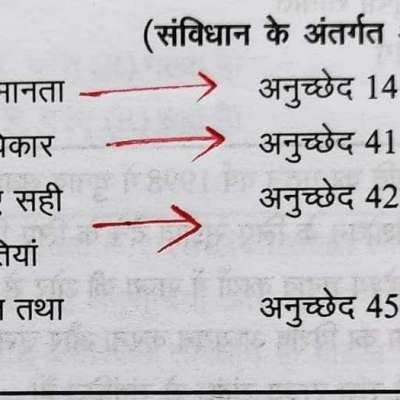 (संविधान के अंतर्गत
मानता अनुच्छेद 14
कार अनुच्छेद 41
सही अनुच्छेद 42
तियां
तथा अनुच्छेद 45